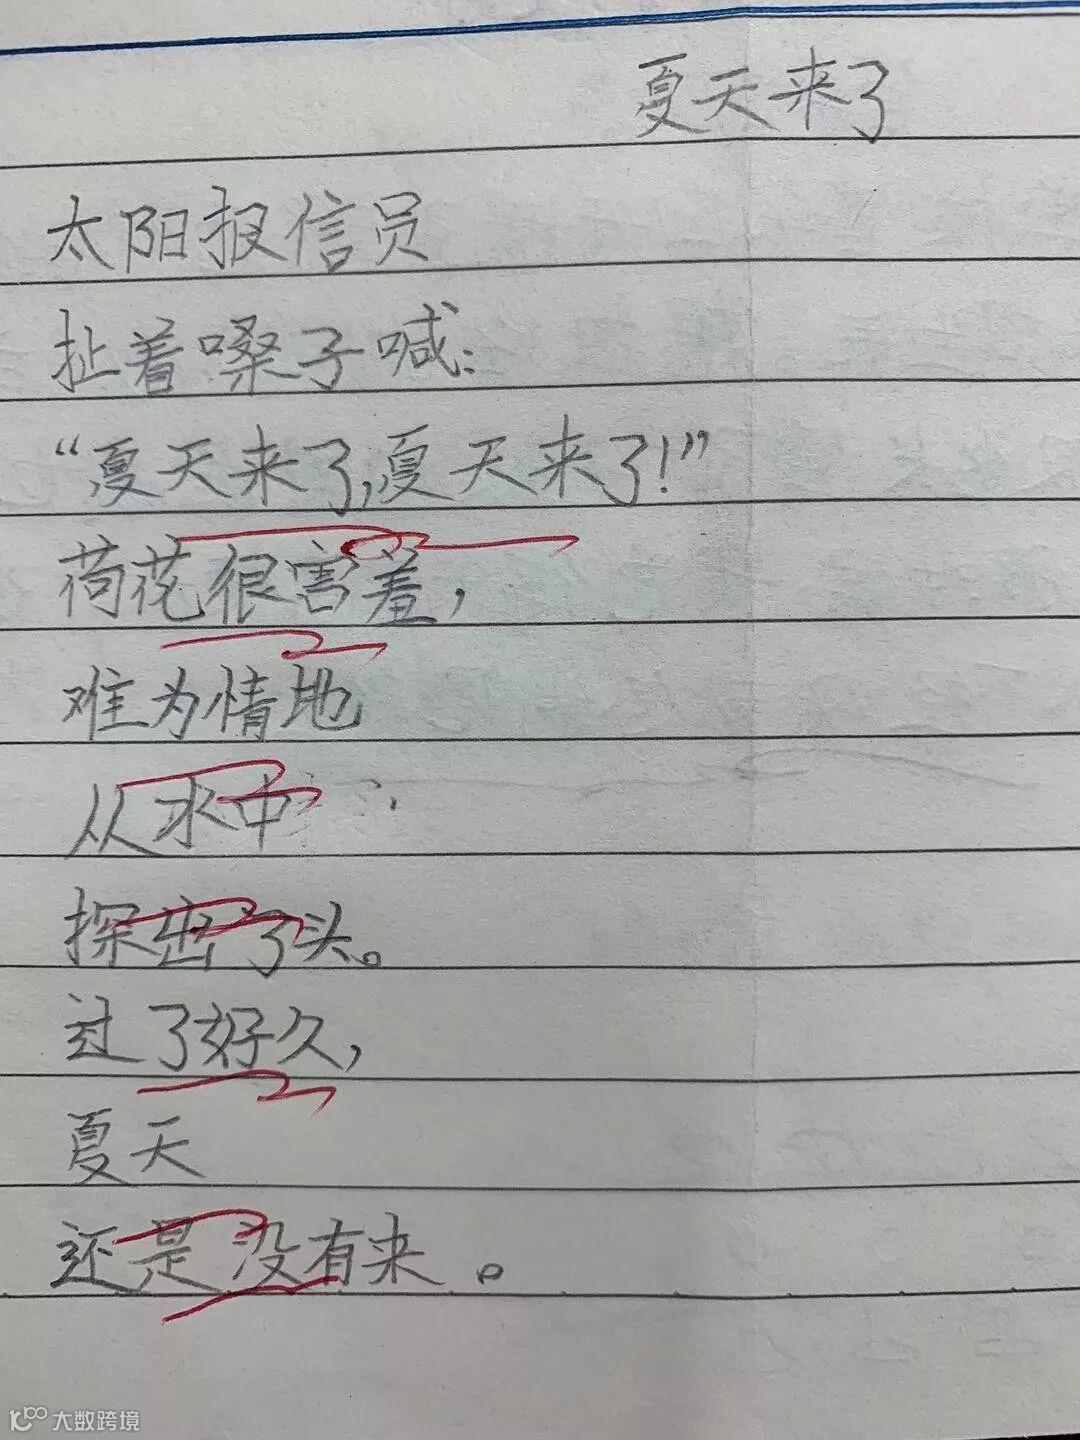 夏天来了
太阳报信员
扯着嗓子喊:
“夏天来了,夏天来了!”
荷花很害羞,
难为情地
从水中
探出了头。
过了好久,
夏天
还是没有来。
大数跨境